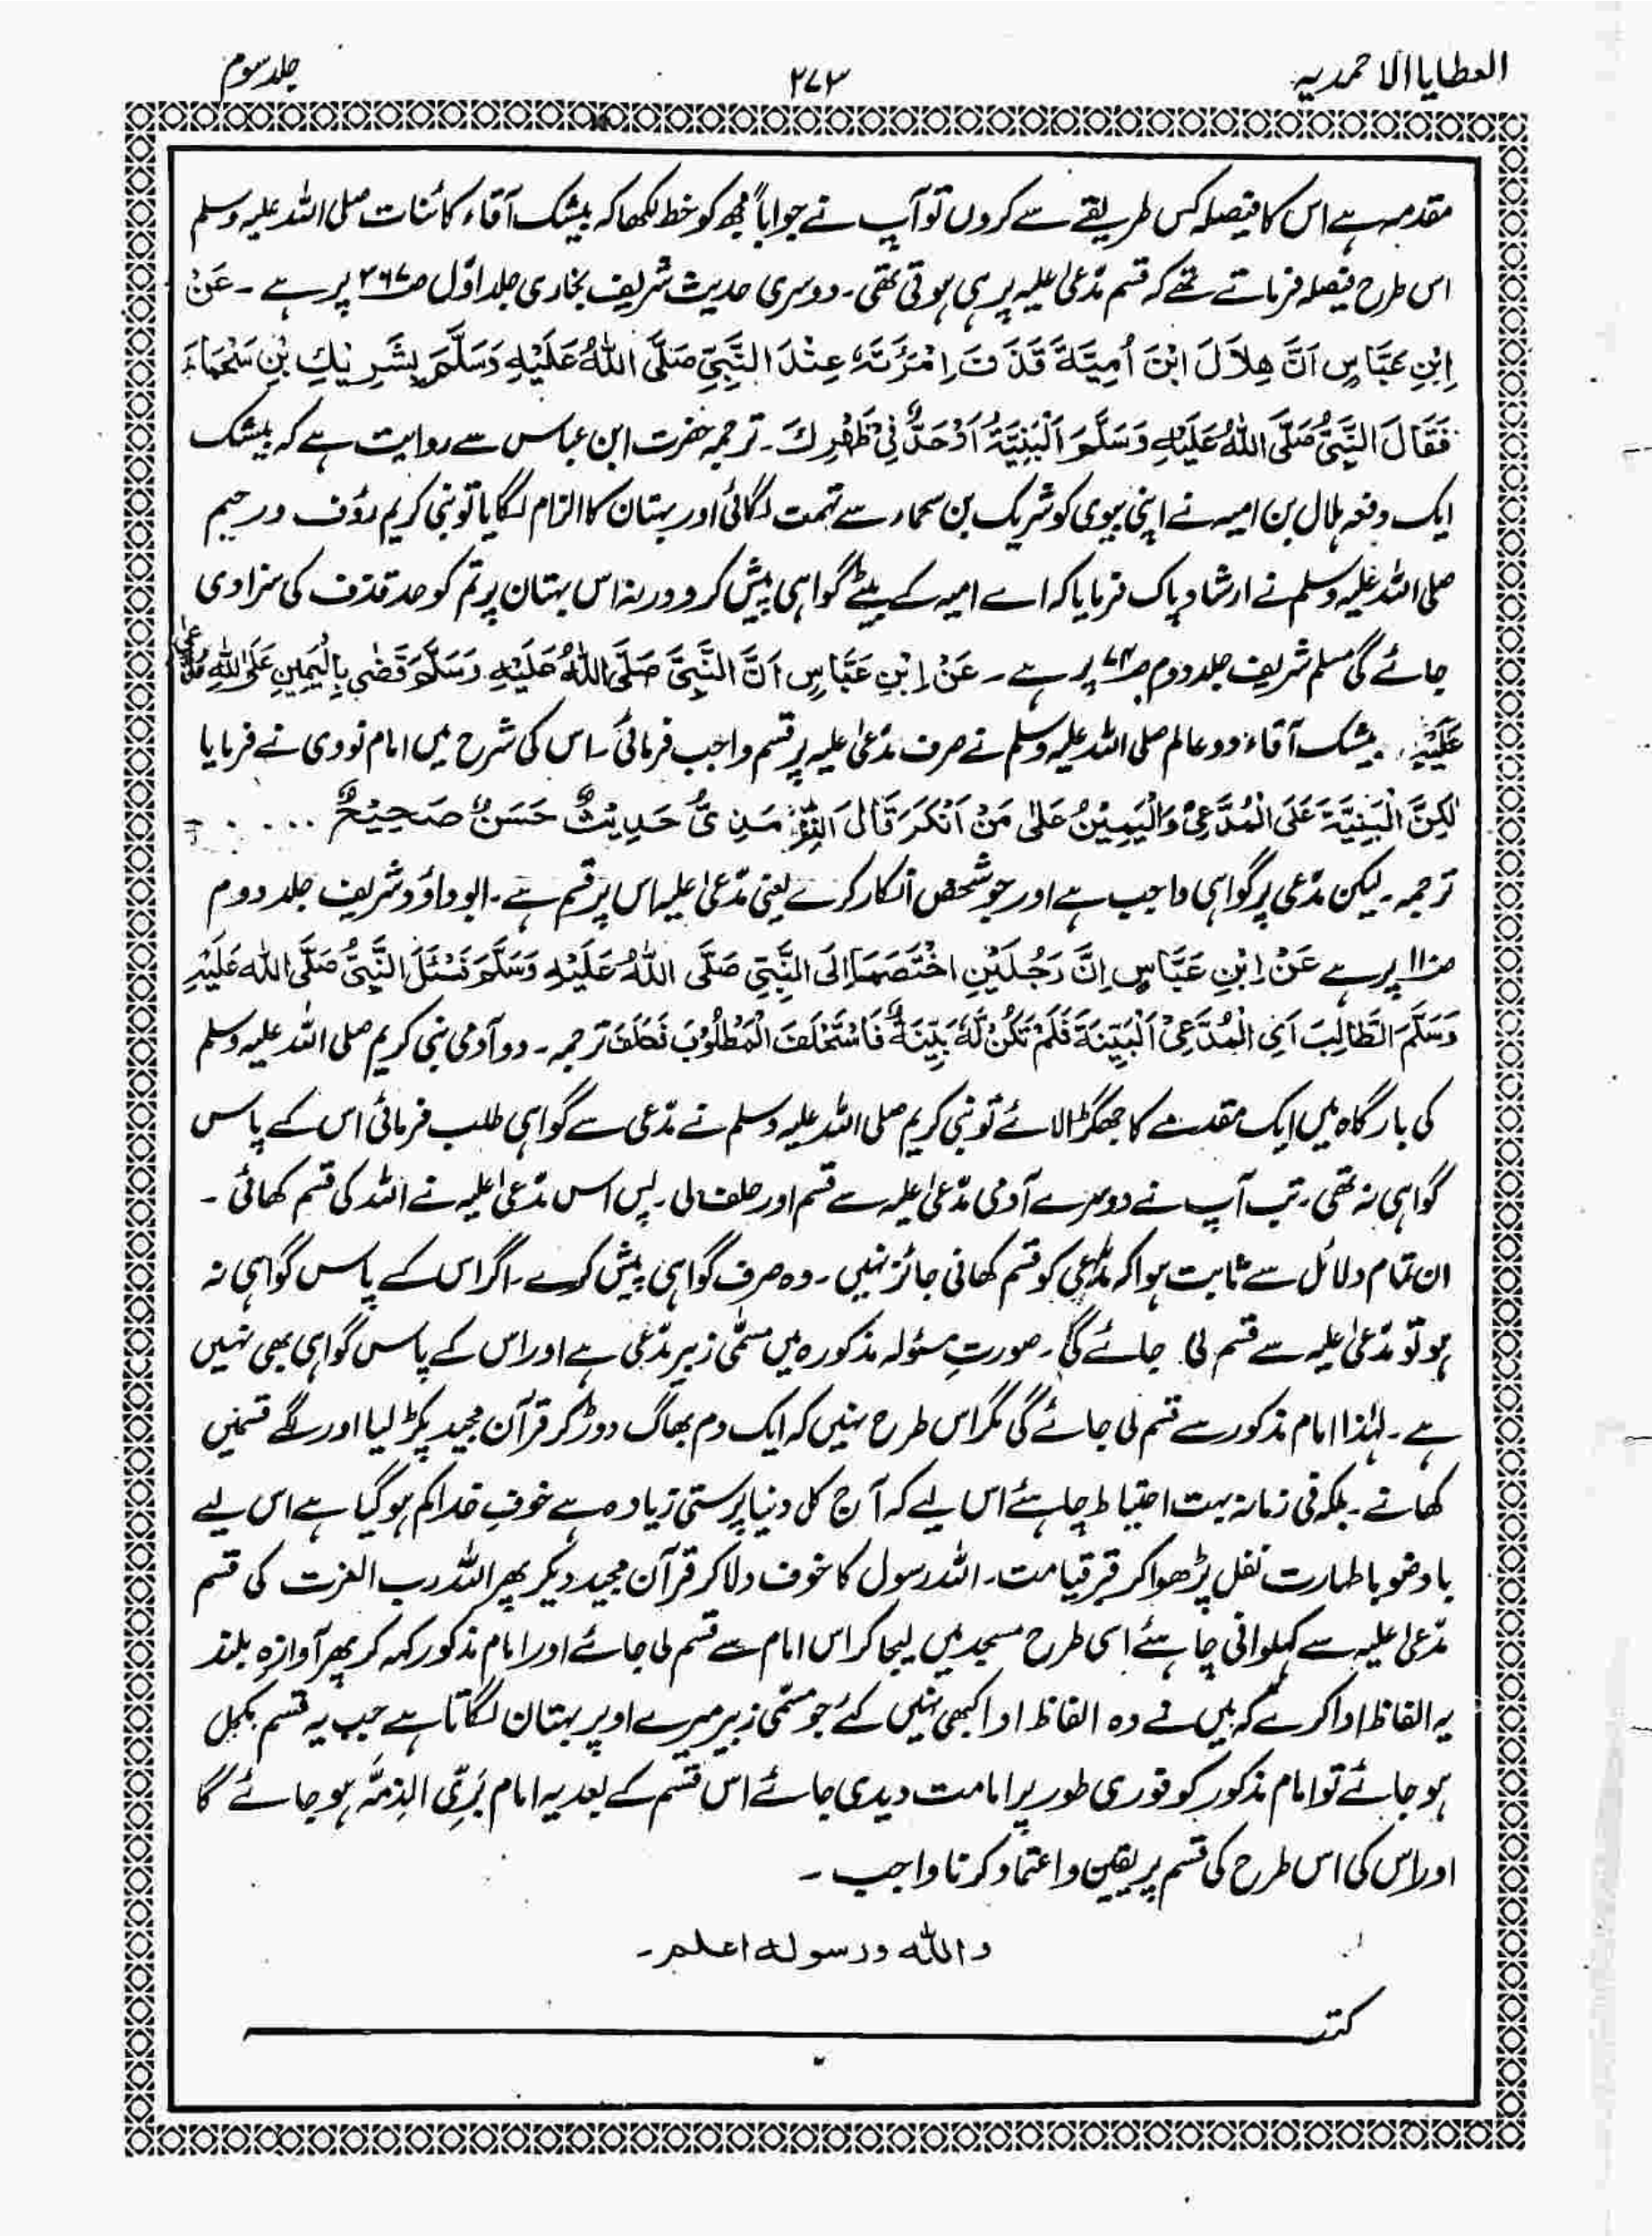 العطایا الاحمدیہ
۲۷۳
جلد سوم
مقدمہ ہے اس کا فیصلہ کس طریقے سے کروں تو آپ نے جواباً مجھ کو خط لکھا کہ بیشک آقاء کائنات صلی اللہ علیہ وسلم
اس طرح فیصلہ فرماتے تھے کہ قسم مدّعیٰ علیہ پر ہی ہوتی تھی۔ دوسری حدیث شریف بخاری جلد اوّل صـ ۳۶۷ پر ہے۔ عَنْ
اِبْنِ عَبَّاسٍ اَنَّ هِلاَلَ ابْنَ اُمِیَّةَ قَذَفَ اِمْرَئَتَهٗ عِنْدَ النَّبِیِّ صَلَّی اللهُ عَلَیْهِ وَسَلَّمَ بِشَرِیْكِ بْنِ سَحْمَاءَ
فَقَالَ النَّبِیُّ صَلَّی اللهُ عَلَیْهِ وَسَلَّمَ اَلْبَیِّنَةُ اَوْحَدٌّ فِیْ ظَهْرِكَ۔ ترجمہ حضرت ابن عباس سے روایت ہے کہ بیشک
ایک دفعہ ہلال بن امیہ نے اپنی بیوی کو شریک بن سحماء سے تہمت لگائی اور بہتان کا الزام لگایا تو نبی کریم رؤف و رحیم
صلی اللہ علیہ وسلم نے ارشاد پاک فرمایا کہ اے امیہ کے بیٹے گواہی پیش کرو ورنہ اس بہتان پر تم کو حد قذف کی سزا دی
جائے گی مسلم شریف جلد دوم صـ ۷۴ پر ہے۔ عَنْ اِبْنِ عَبَّاسٍ اَنَّ النَّبِیَّ صَلَّی اللهُ عَلَیْهِ وَسَلَّمَ قَضٰی بِالْیَمِیْنِ عَلَی
عَلَیْهِ۔ بیشک آقاء دو عالم صلی اللہ علیہ وسلم نے صرف مدّعیٰ علیہ پر قسم واجب فرمائی۔ اس کی شرح میں امام نووی نے فرمایا
لٰکِنَّ الْبَیِّنَةَ عَلَی الْمُدَّعِیْ وَالْیَمِیْنُ عَلٰی مَنْ اَنْکَرَ قَالَ التِّرْمَذِیُّ حَدِیْثٌ حَسَنٌ صَحِیْحٌ ....
ترجمہ۔ لیکن مدّعی پر گواہی واجب ہے اور جو شخص انکار کرے یعنی مدّعیٰ علیہ اس پر قسم ہے۔ ابوداؤد شریف جلد دوم
صـ ۱۱ پر ہے عَنْ اِبْنِ عَبَّاسٍ اِنَّ رَجُلَیْنِ اخْتَصَمَا اِلَی النَّبِیِّ صَلَّی اللهُ عَلَیْهِ وَسَلَّمَ فَسْئَلَ النَّبِیُّ صَلَّی الله عَلَیْهِ
وَسَلَّمَ الطَّالِبَ اَیِ الْمُدَّعِیْ اَلْبَیِّنَةَ فَلَمْ تَکُنْ لَهٗ بَیِّنَةٌ فَاسْتَحْلَفَ الْمَطْلُوْبَ فَحَلَفَ ترجمہ۔ دو آدمی نبی کریم صلی اللہ علیہ وسلم
کی بارگاہ میں ایک مقدمے کا جھگڑا لائے تو نبی کریم صلی اللہ علیہ وسلم نے مدّعی سے گواہی طلب فرمائی اس کے پاس
گواہی نہ تھی۔ تب آپ نے دوسرے آدمی مدّعیٰ علیہ سے قسم اور حلف لی۔ پس اس مدّعیٰ علیہ نے اللہ کی قسم کھائی۔
ان تمام دلائل سے ثابت ہوا کہ مدّعی کو قسم کھانی جائز نہیں۔ وہ صرف گواہی پیش کرے۔ اگر اس کے پاس گواہی نہ
ہو تو مدّعیٰ علیہ سے قسم لی جائے گی۔ صورتِ مسئولہ مذکورہ میں مسمّٰی زبیر مدّعی ہے اور اس کے پاس گواہی بھی نہیں
ہے۔ لہٰذا امام مذکور سے قسم لی جائے گی مگر اس طرح نہیں کہ ایک دم بھاگ دوڑ کر قرآن مجید پکڑ لیا اور لگے قسمیں
کھانے۔ بلکہ فی زمانہ بہت احتیاط چاہئے اس لیے کہ آج کل دنیا پرستی زیادہ ہے خوفِ خدا کم ہو گیا ہے اس لیے
باوضو با طہارت نفل پڑھوا کر قبر قیامت۔ اللہ رسول کا خوف دلا کر قرآن مجید دیکر پھر اللہ رب العزت کی قسم
مدّعیٰ علیہ سے کہلوانی چاہئے اسی طرح مسجد میں لیجا کر اس امام سے قسم لی جائے اور امام مذکور کہہ کر پھر آوازہ بلند
یہ الفاظ ادا کرے کہ میں نے وہ الفاظ ادا کبھی نہیں کئے جو مسمّٰی زبیر میرے اوپر بہتان لگاتا ہے جب یہ قسم مکمل
ہو جائے تو امام مذکور کو فوری طور پر امامت دیدی جائے اس قسم کے بعد یہ امام بَرِّی الذِمَّہ ہو جائے گا
اور اس کی اس طرح کی قسم پر یقین و اعتماد کرنا واجب۔
والله ورسوله اعلم۔
کتبہ